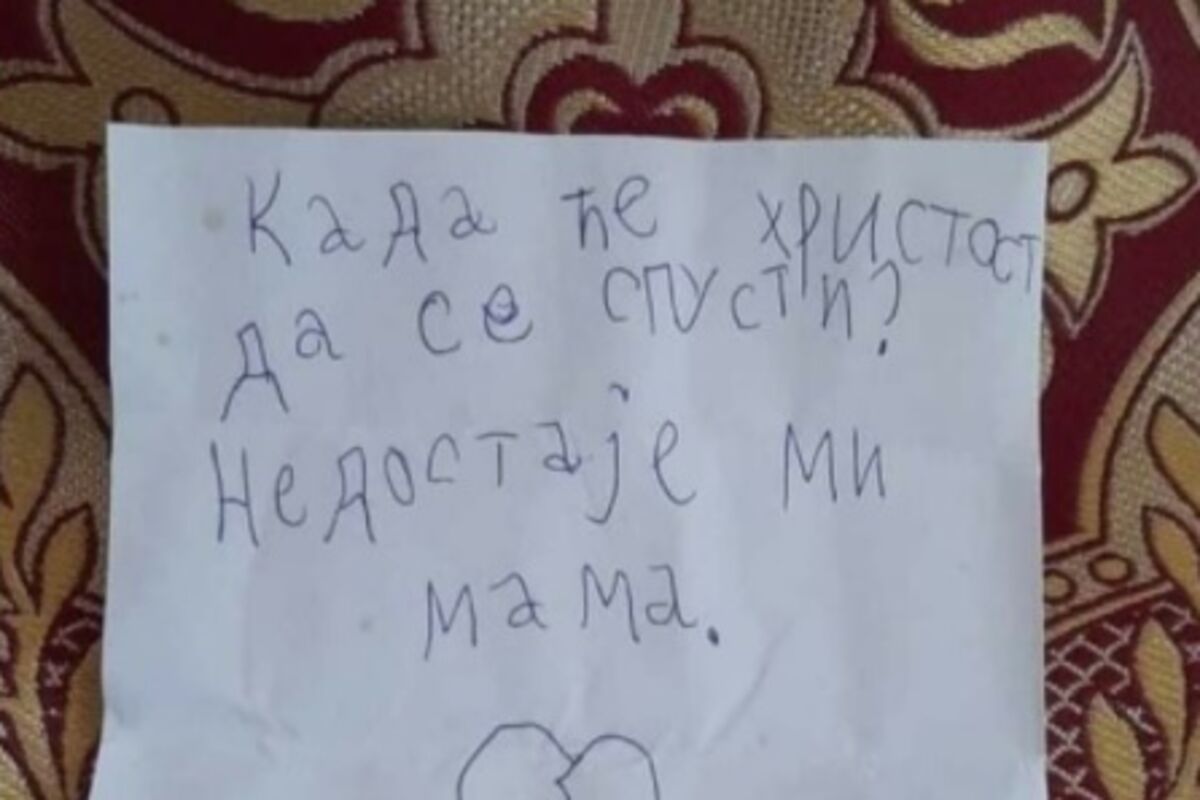 Када ће христост
да се спусти?
Недостаје ми
мама.